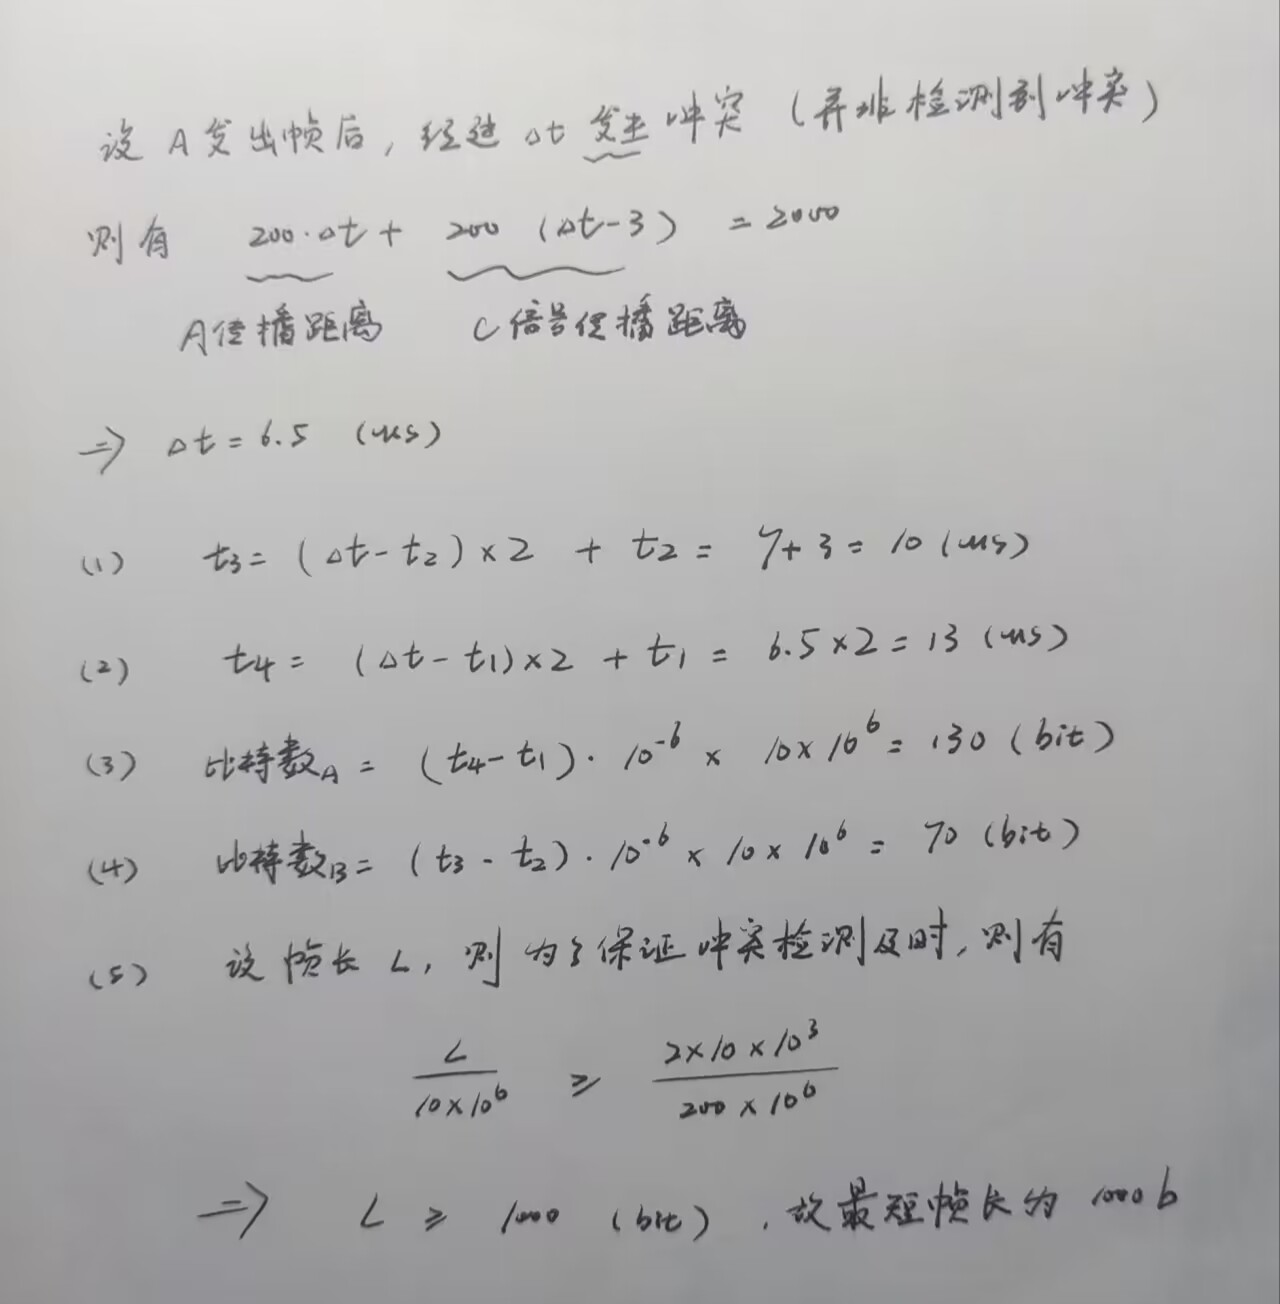 设 A 发出帧后, 经过 Δt 发生 冲突 (并非检测到冲突)
则有 200·Δt + 200 (Δt-3) = 2000
A传播距离 C信号传播距离
⇒ Δt = 6.5 (us)
(1) t3 = (Δt - t2) × 2 + t2 = 7 + 3 = 10 (us)
(2) t4 = (Δt - t1) × 2 + t1 = 6.5 × 2 = 13 (us)
(3) 比特数A = (t4 - t1) · 10^-6 × 10 × 10^6 = 130 (bit)
(4) 比特数B = (t3 - t2) · 10^-6 × 10 × 10^6 = 70 (bit)
(5) 设帧长 L, 则为了保证冲突检测及时, 则有
L / (10×10^6) ≥ (2×10×10^3) / (200×10^6)
⇒ L ≥ 1000 (bit), 故最短帧长为 1000 b